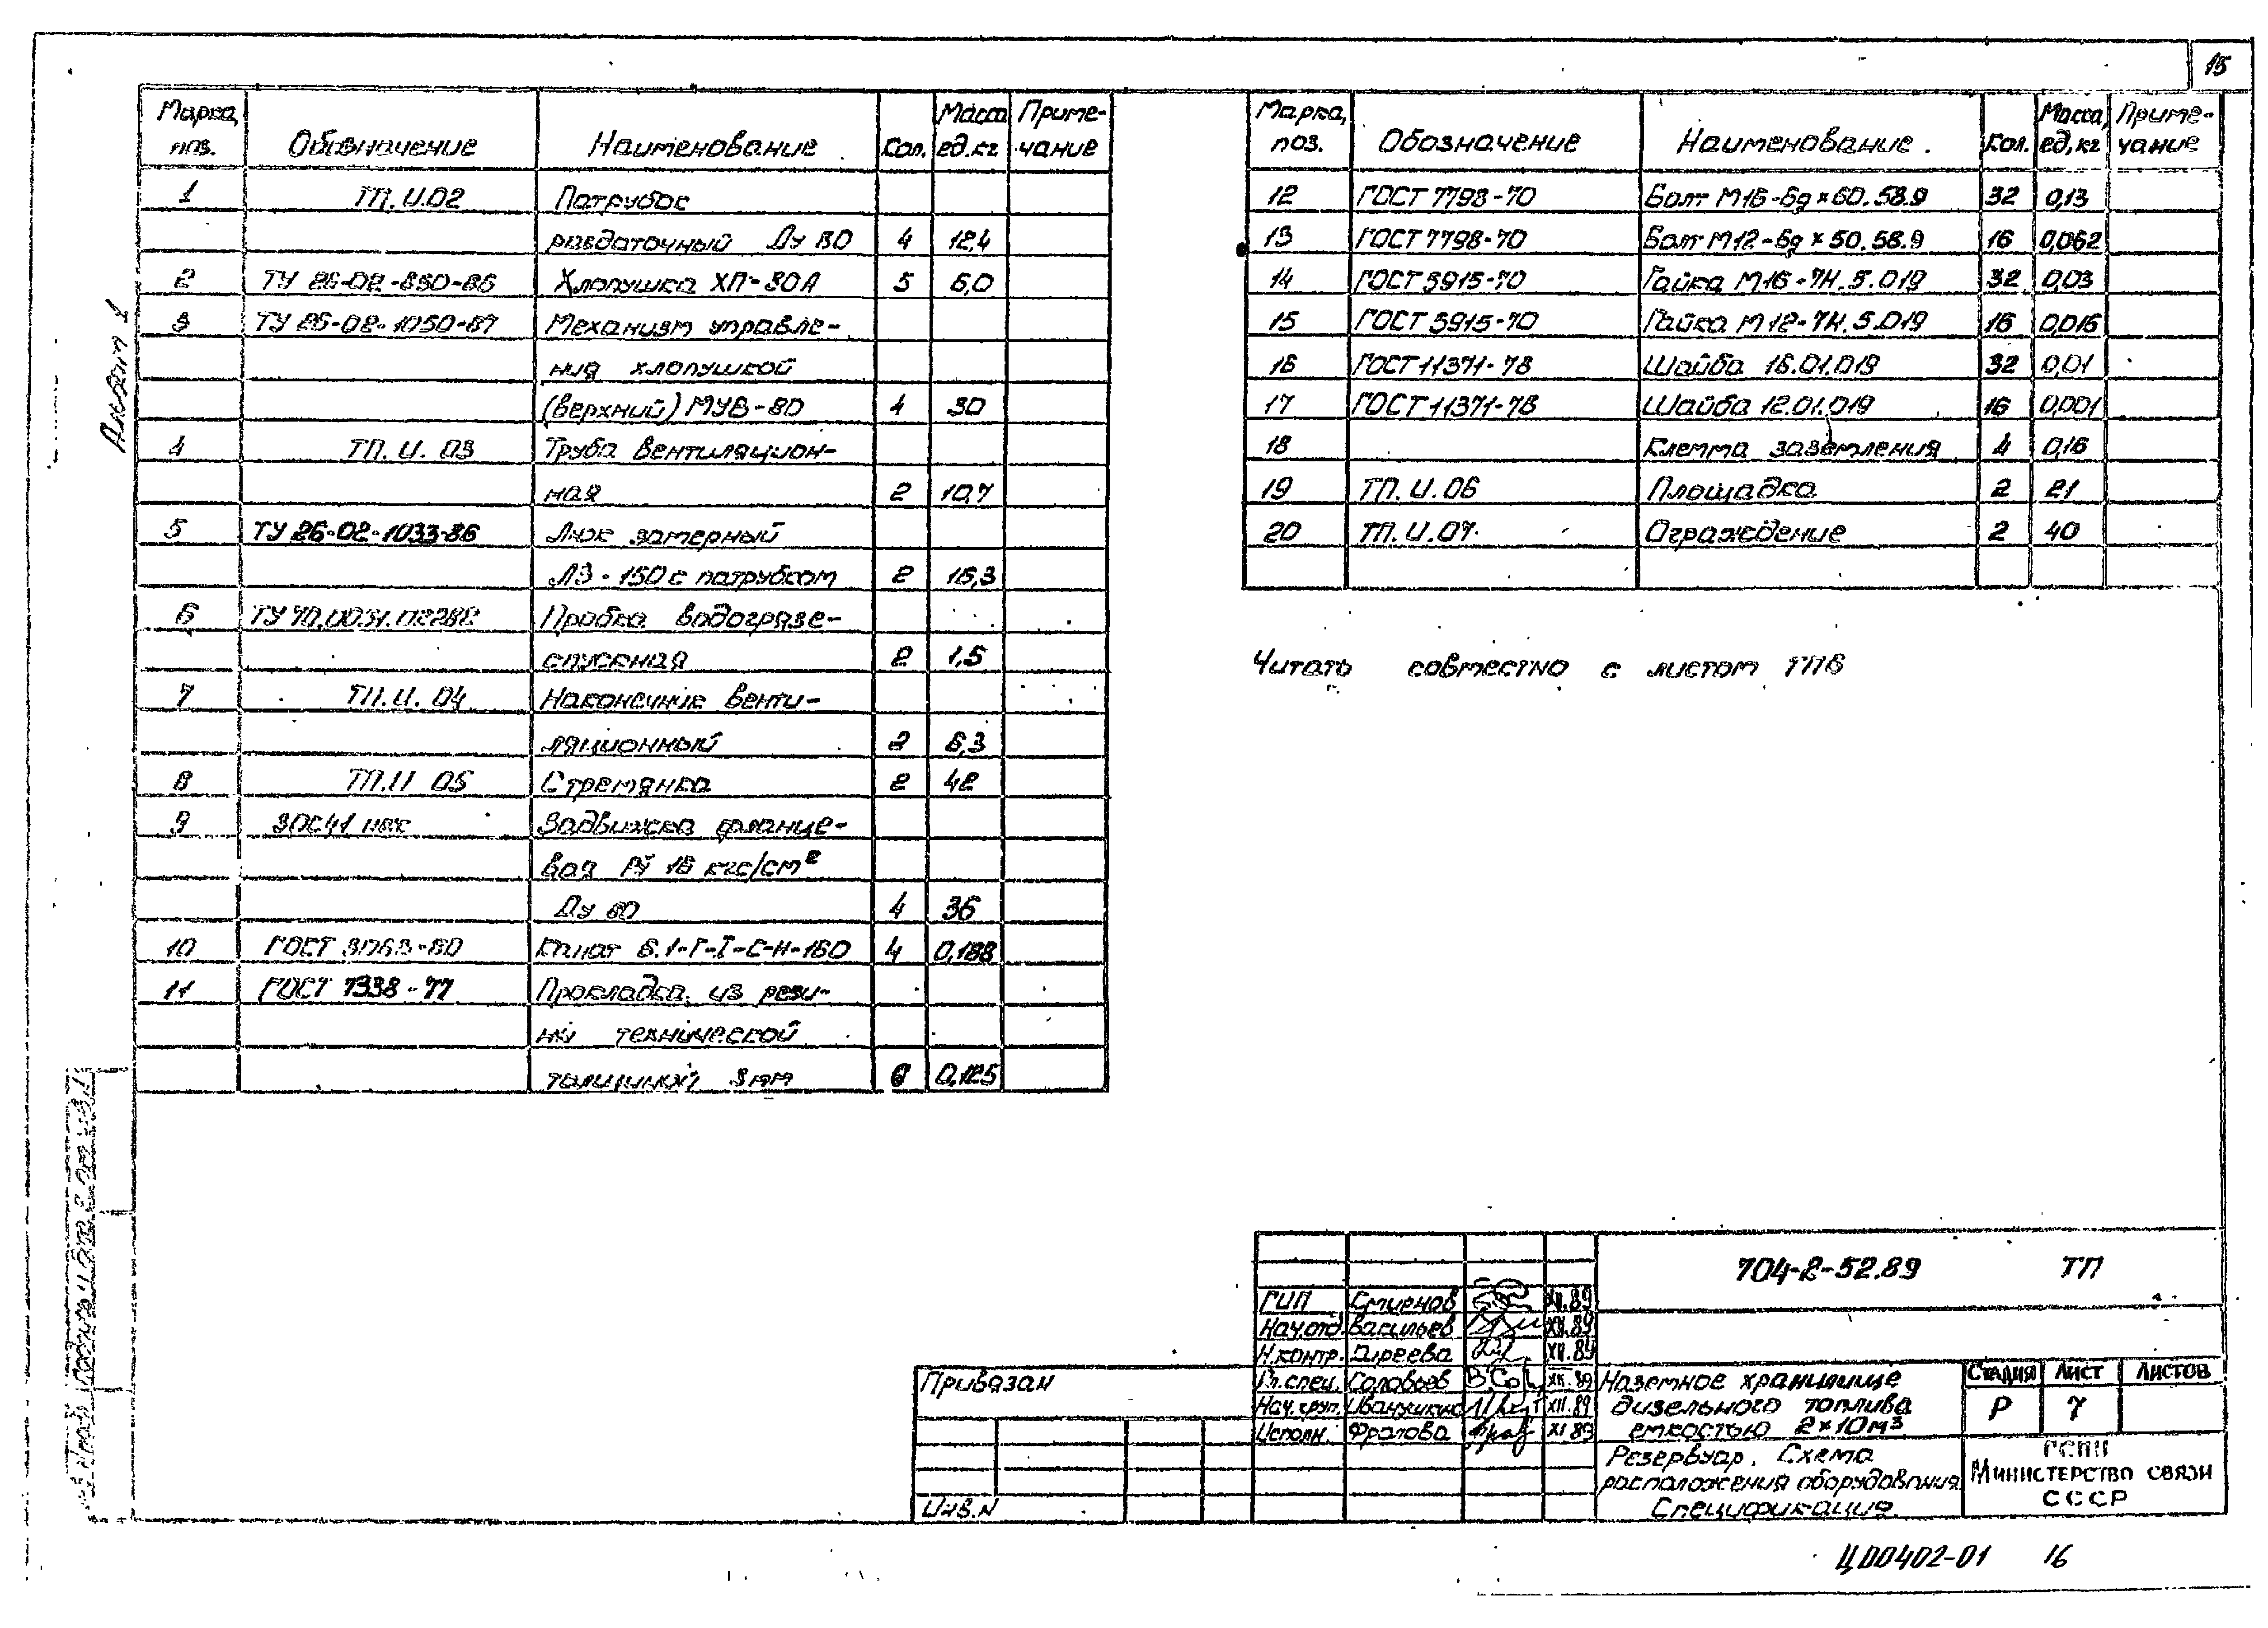 15
Альбом 1
Марка, поз. Обозначение Наименование Кол. Масса ед. кг Приме-чание
1 ТП.И.02 Патрубок
раздаточный Ду 80 4 12,4
2 ТУ 26-02-850-86 Хлопушка ХП-80А 5 6,0
3 ТУ 26-02-1050-87 Механизм управле-
ния хлопушкой
(верхний) МУВ-80 4 30
4 ТП.И.03 Труба вентиляцион-
ная 2 10,7
5 ТУ 26-02-1033-86 Люк замерный
ЛЗ-150 с патрубком 2 15,3
6 Пробка водогрязе-
спускная 2 1,5
7 ТП.И.04 Наконечник венти-
ляционный 2 6,3
8 ТП.И 05 Стремянка 2 42
9 Задвижка фланце-
вая Ру 16 кгс/см²
Ду 80 4 36
10 ГОСТ 3063-80 Канат 6.1-Г-I-С-Н-160 4 0,188
11 ГОСТ 7338-77 Прокладка из рези-
ны технической
толщиной 3мм 0,125
Марка, поз. Обозначение Наименование. Кол. Масса, ед, кг Приме-чание
12 ГОСТ 7798-70 Болт М16-6g×60.58.9 32 0,13
13 ГОСТ 7798-70 Болт М12-6g×50.58.9 16 0,062
14 ГОСТ 5915-70 Гайка М16-7Н.5.019 32 0,03
15 ГОСТ 5915-70 Гайка М12-7Н.5.019 16 0,016
16 ГОСТ 11371-78 Шайба 16.01.019 32 0,01
17 ГОСТ 11371-78 Шайба 12.01.019 16 0,001
18 Клемма заземления 4 0,16
19 ТП.И.06 Площадка 2 21
20 ТП.И.07 Ограждение 2 40
Читать совместно с листом ТП6
704-2-52.89 ТП
ГИП Смирнов XII.89
Нач.отд. Васильев XII.89
Н.контр. XII.89
Гл.спец. Соловьев XII.89
Нач.груп. XII.89
Исполн. Фролова XI.89
Привязан
Инв.N
Наземное хранилище
дизельного топлива
емкостью 2×10м³
Стадия Лист Листов
Р 7
Резервуар. Схема
расположения оборудования
Спецификация.
ГСПИ
Министерство связи
СССР
ЦД0402-01 16